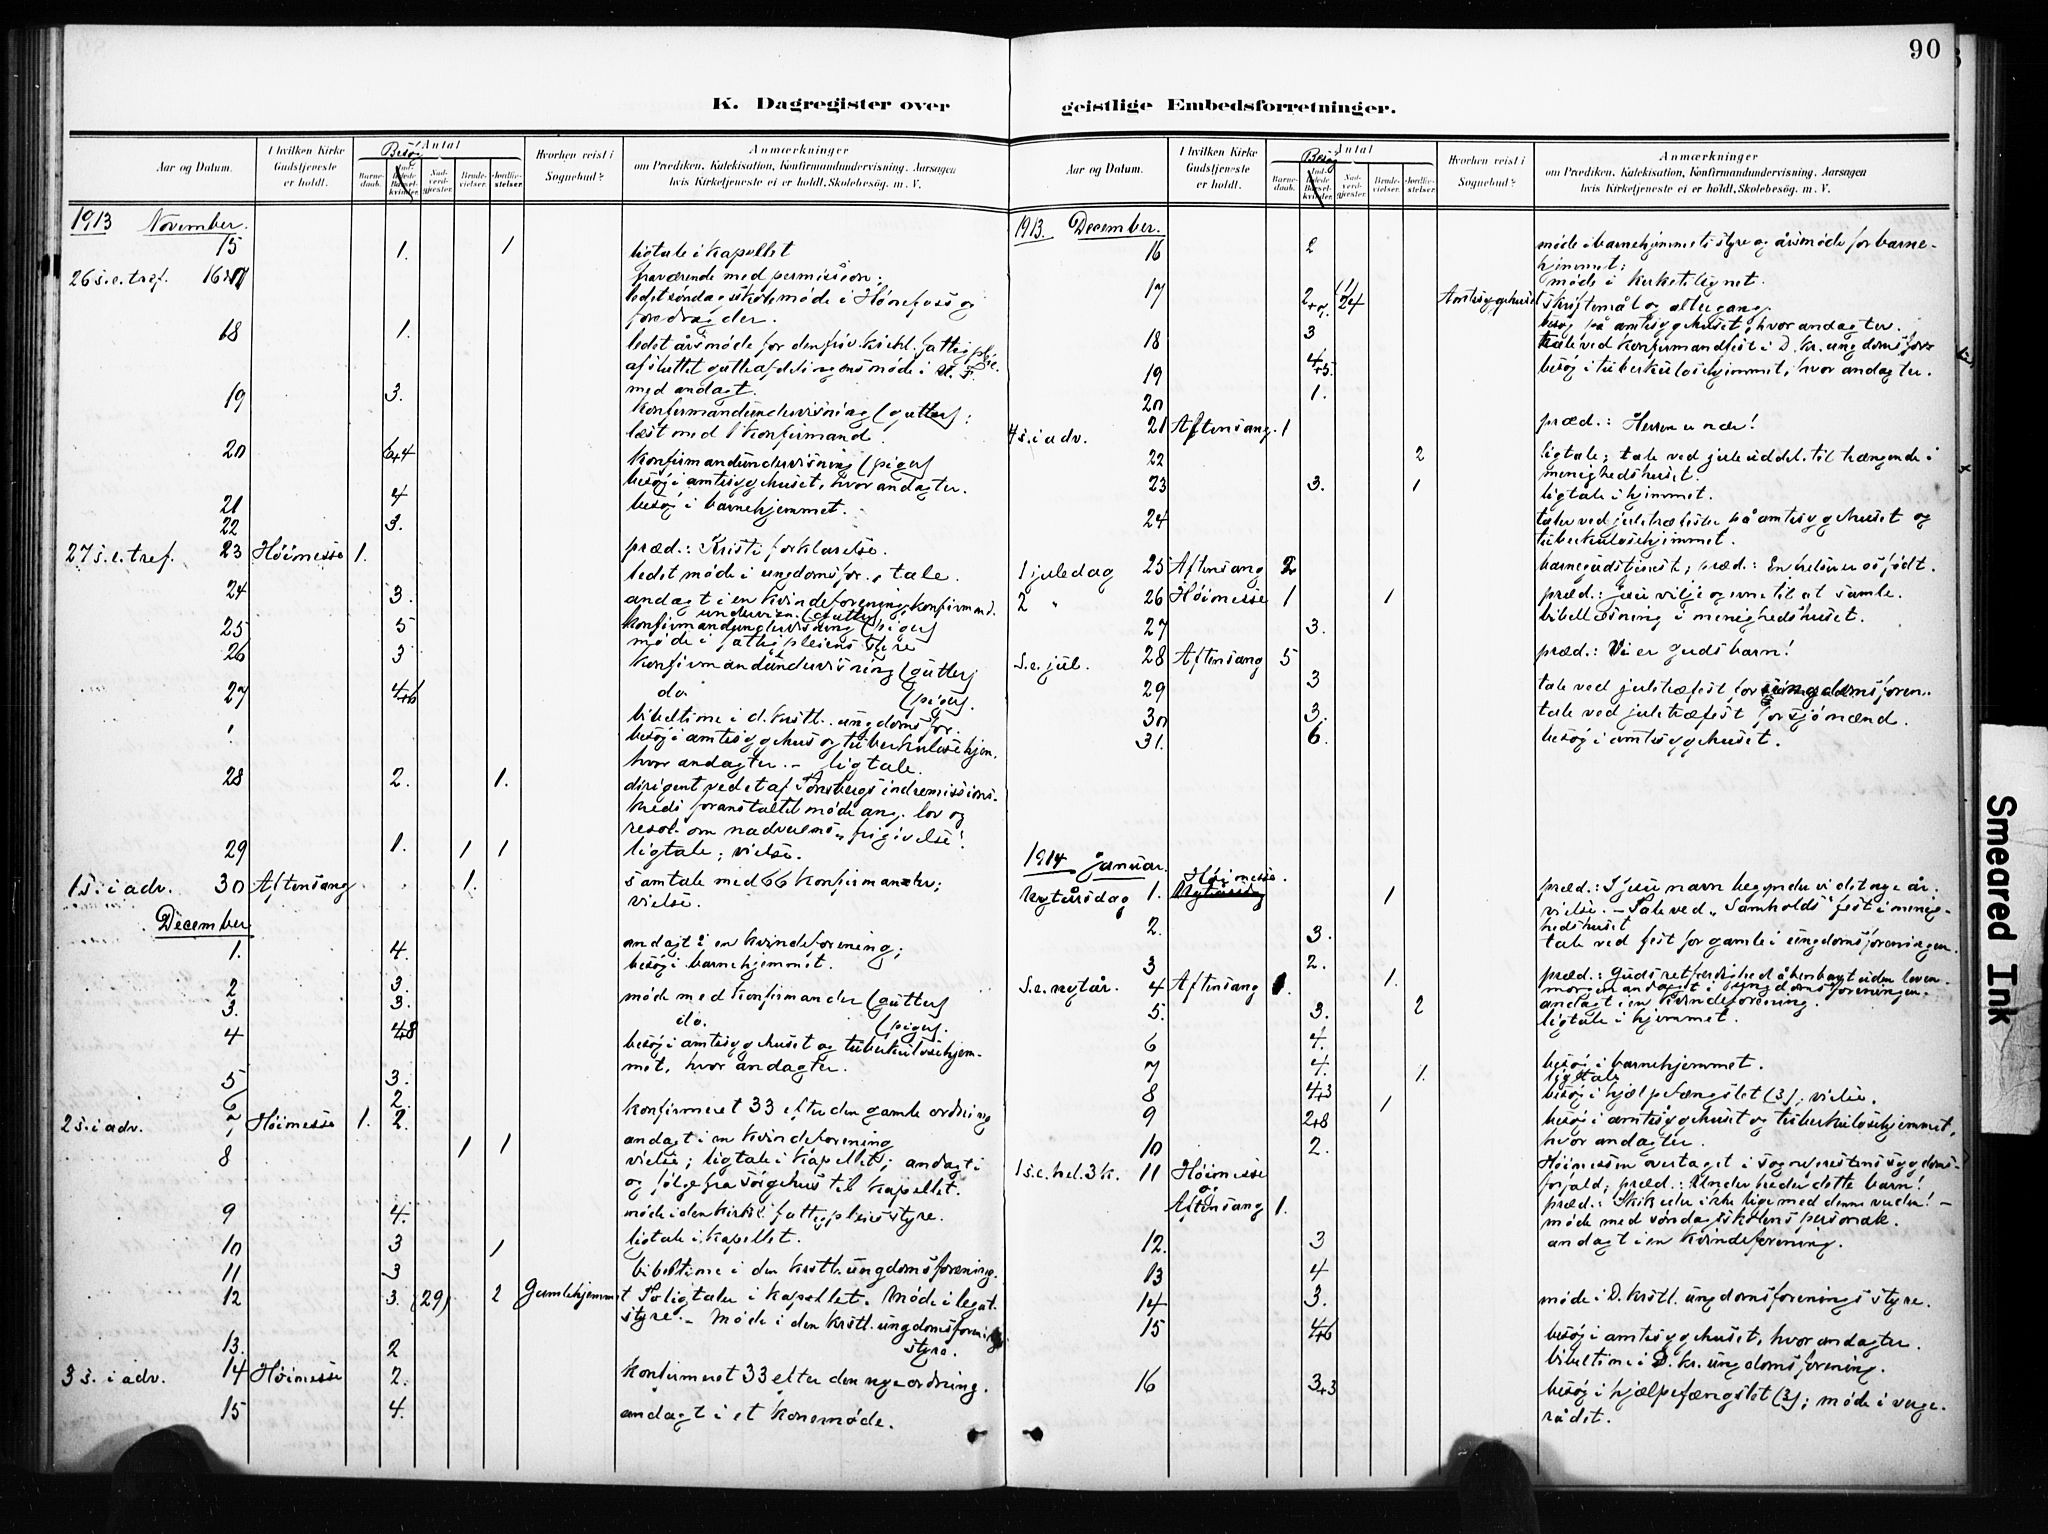 90
K. Dagregister over
geistlige Embedsforretninger.
Aar og Datum.
I hvilken Kirke Gudstjeneste er holdt.
Besøg
Antal
Barne-daab.
Ind-ledede Barsel-kvinder.
Nad-verd-gjester.
Brude-vielser.
Jordfæ-stelser.
Hvorhen reist i Sognebud?
Anmærkninger
om Prædiken, Katekisation, Konfirmandundervisning, Aarsagen
hvis Kirketjeneste ei er holdt, Skolebesøg, m. V.
1913 November.
15 1. 1 ligtale i kapellet
26 s.e.tref. 16 fraværende med permission;
ledet søndagsskolemøde i Hønefoss og
foredrag der.
18 1. ledet årsmøde for den friv. kirkl. fattigpleie.
afsluttet gutteafdelingens møde i
med andagt.
19 3. konfirmandundervisning (gutter);
læst med 1 konfirmand.
20 6+4 konfirmandundervisning (piger)
besøg i amtssygehuset, hvor andagter.
21 4 besøg i barnehjemmet.
22 3.
27 s.e.tref. 23 Høimesse 1. præd.: Kristi forklarelse.
ledet møde i ungdomsfor., tale.
24 3. andagt i en kvindeforening, konfirmand.
undervisn. (gutter)
25 5 konfirmandundervisning (piger)
møde i fattigpleiens styre
26 3 konfirmandundervisning (gutter)
27 4+6 do (piger).
bibeltime i d. kristl. ungdomsfor.
besøg i amtssygehus og tuberkulosehjem.
hvor andagter. – ligtale.
28 2. 1. dirigent ved et af Tønsbergs indremissions-
kreds foranstaltet møde ang. lov og
resol. om nadverens „frigivelse".
29 1. 1 1 ligtale; vielse.
1 s. i adv. 30 Aftensang 1. samtale med 66 konfirmander;
vielse.
December
1. 4. andagt i en kvindeforening;
besøg i barnehjemmet.
2 3.
3. 3. møde med konfirmander (gutter)
do. (piger).
4 4+8 besøg i amtssygehuset og tuberkulosehjem-
met, hvor andagter.
5 3.
6 2.
2 s. i adv. 7 Høimesse 1. 2. konfirmeret 33 efter den gamle ordning
andagt i en kvindeforening
8 1 1 vielse; ligtale i kapellet; andagt i
og følge fra sørgehus til kapellet.
9 4. møde i den kirkl. fattigpleies styre.
10 3 1 ligtale i kapellet.
11 3 bibeltime i den kristl. ungdomsforening.
12 3. (29) 2 Gamlehjemmet To ligtaler i kapellet. Møde i legat-
styre. – Møde i den kristl. ungdomsforenings
styre.
13. 2
3 s. i adv. 14 Høimesse 2. konfirmeret 33 efter den nye ordning.
15 4. andagt i et konemøde.
Aar og Datum.
I hvilken Kirke Gudstjeneste er holdt.
Besøg
Antal
Barne-daab.
Ind-ledede Barsel-kvinder.
Nad-verd-gjester.
Brude-vielser.
Jordfæ-stelser.
Hvorhen reist i Sognebud?
Anmærkninger
om Prædiken, Katekisation, Konfirmandundervisning, Aarsagen
hvis Kirketjeneste ei er holdt, Skolebesøg, m. V.
1913. December.
16 2 møde i barnehjemmets styre og årsmøde for barne-
hjemmet;
møde i kirketilsynet.
17 24 Amtssygehuset skriftemål og altergang.
besøg på amtssygehuset, hvor andagter.
18 3 tale ved konfirmandfest i D. kr. ungdomsfor.
19 4+5 besøg i tuberkulosehjemmet, hvor andagter.
20 1.
4 s. i adv. 21 Aftensang. 1 præd.: Herren er nær!
22 2 ligtale; tale ved juleuddel. til trængende i
menighedshuset.
23 3. 1 ligtale i hjemmet.
24 taler ved juletræfester på amtssygehuset og
tuberkulosehjemmet.
1 juledag 25 Aftensang 2 barnegudstjenest; præd.: En frelser er os født.
2 " 26 Høimesse 1 1 præd.: Jesu vilje og evne til at samle.
27 3. bibellæsning i menighedshuset.
S.e. jul. 28 Aftensang 5 præd.: Vi er guds barn!
29 3 tale ved juletræfest for ungdomsforen.
30 3. tale ved juletræfest for sjømænd.
31. 6. besøg i amtssygehuset.
1914 januar.
Nytårsdag 1. Høimesse. 1 præd.: I Jesu navn begynder vi det nye år.
vielse. – Tale ved „Samholds" fest i menig-
hedshuset
2. 3. tale ved fest for gamle i ungdomsforeningen.
3 2.
S.e. nytår. 4 Aftensang 1. 1. præd.: Guds retfærdighed åbenbaret uden loven.
morgenandagt i ungdomsforeningen.
5. 3. 2 andagt i en kvindeforening.
ligtale i hjemmet.
6 4.
7 4. 1. besøg i barnehjemmet.
ligtale
8 4+3 besøg i hjælpefængslet (3); vielse.
9 2+8 1 besøg i amtssygehuset og tuberkulosehjemmet,
hvor andagter.
10 2.
1 s.e. hel. 3 k. 11 Høimesse Høimessen overtaget i sogneprestens sygdoms-
og forfald; præd.: Under
Aftensang 1. præd.: Skik eder ikke lige med denne verden! –
møde med søndagsskolens personale.
12. 3 andagt i en kvindeforening.
13 4
14 3. møde i D. kristl. ungdomsforenings styre.
15 4+6 besøg i amtssygehuset, hvor andagter
bibeltime i D. kr. ungdomsforening.
16 3+3 besøg i hjælpefængslet (3); møde i verge-
rådet.
Smeared Ink